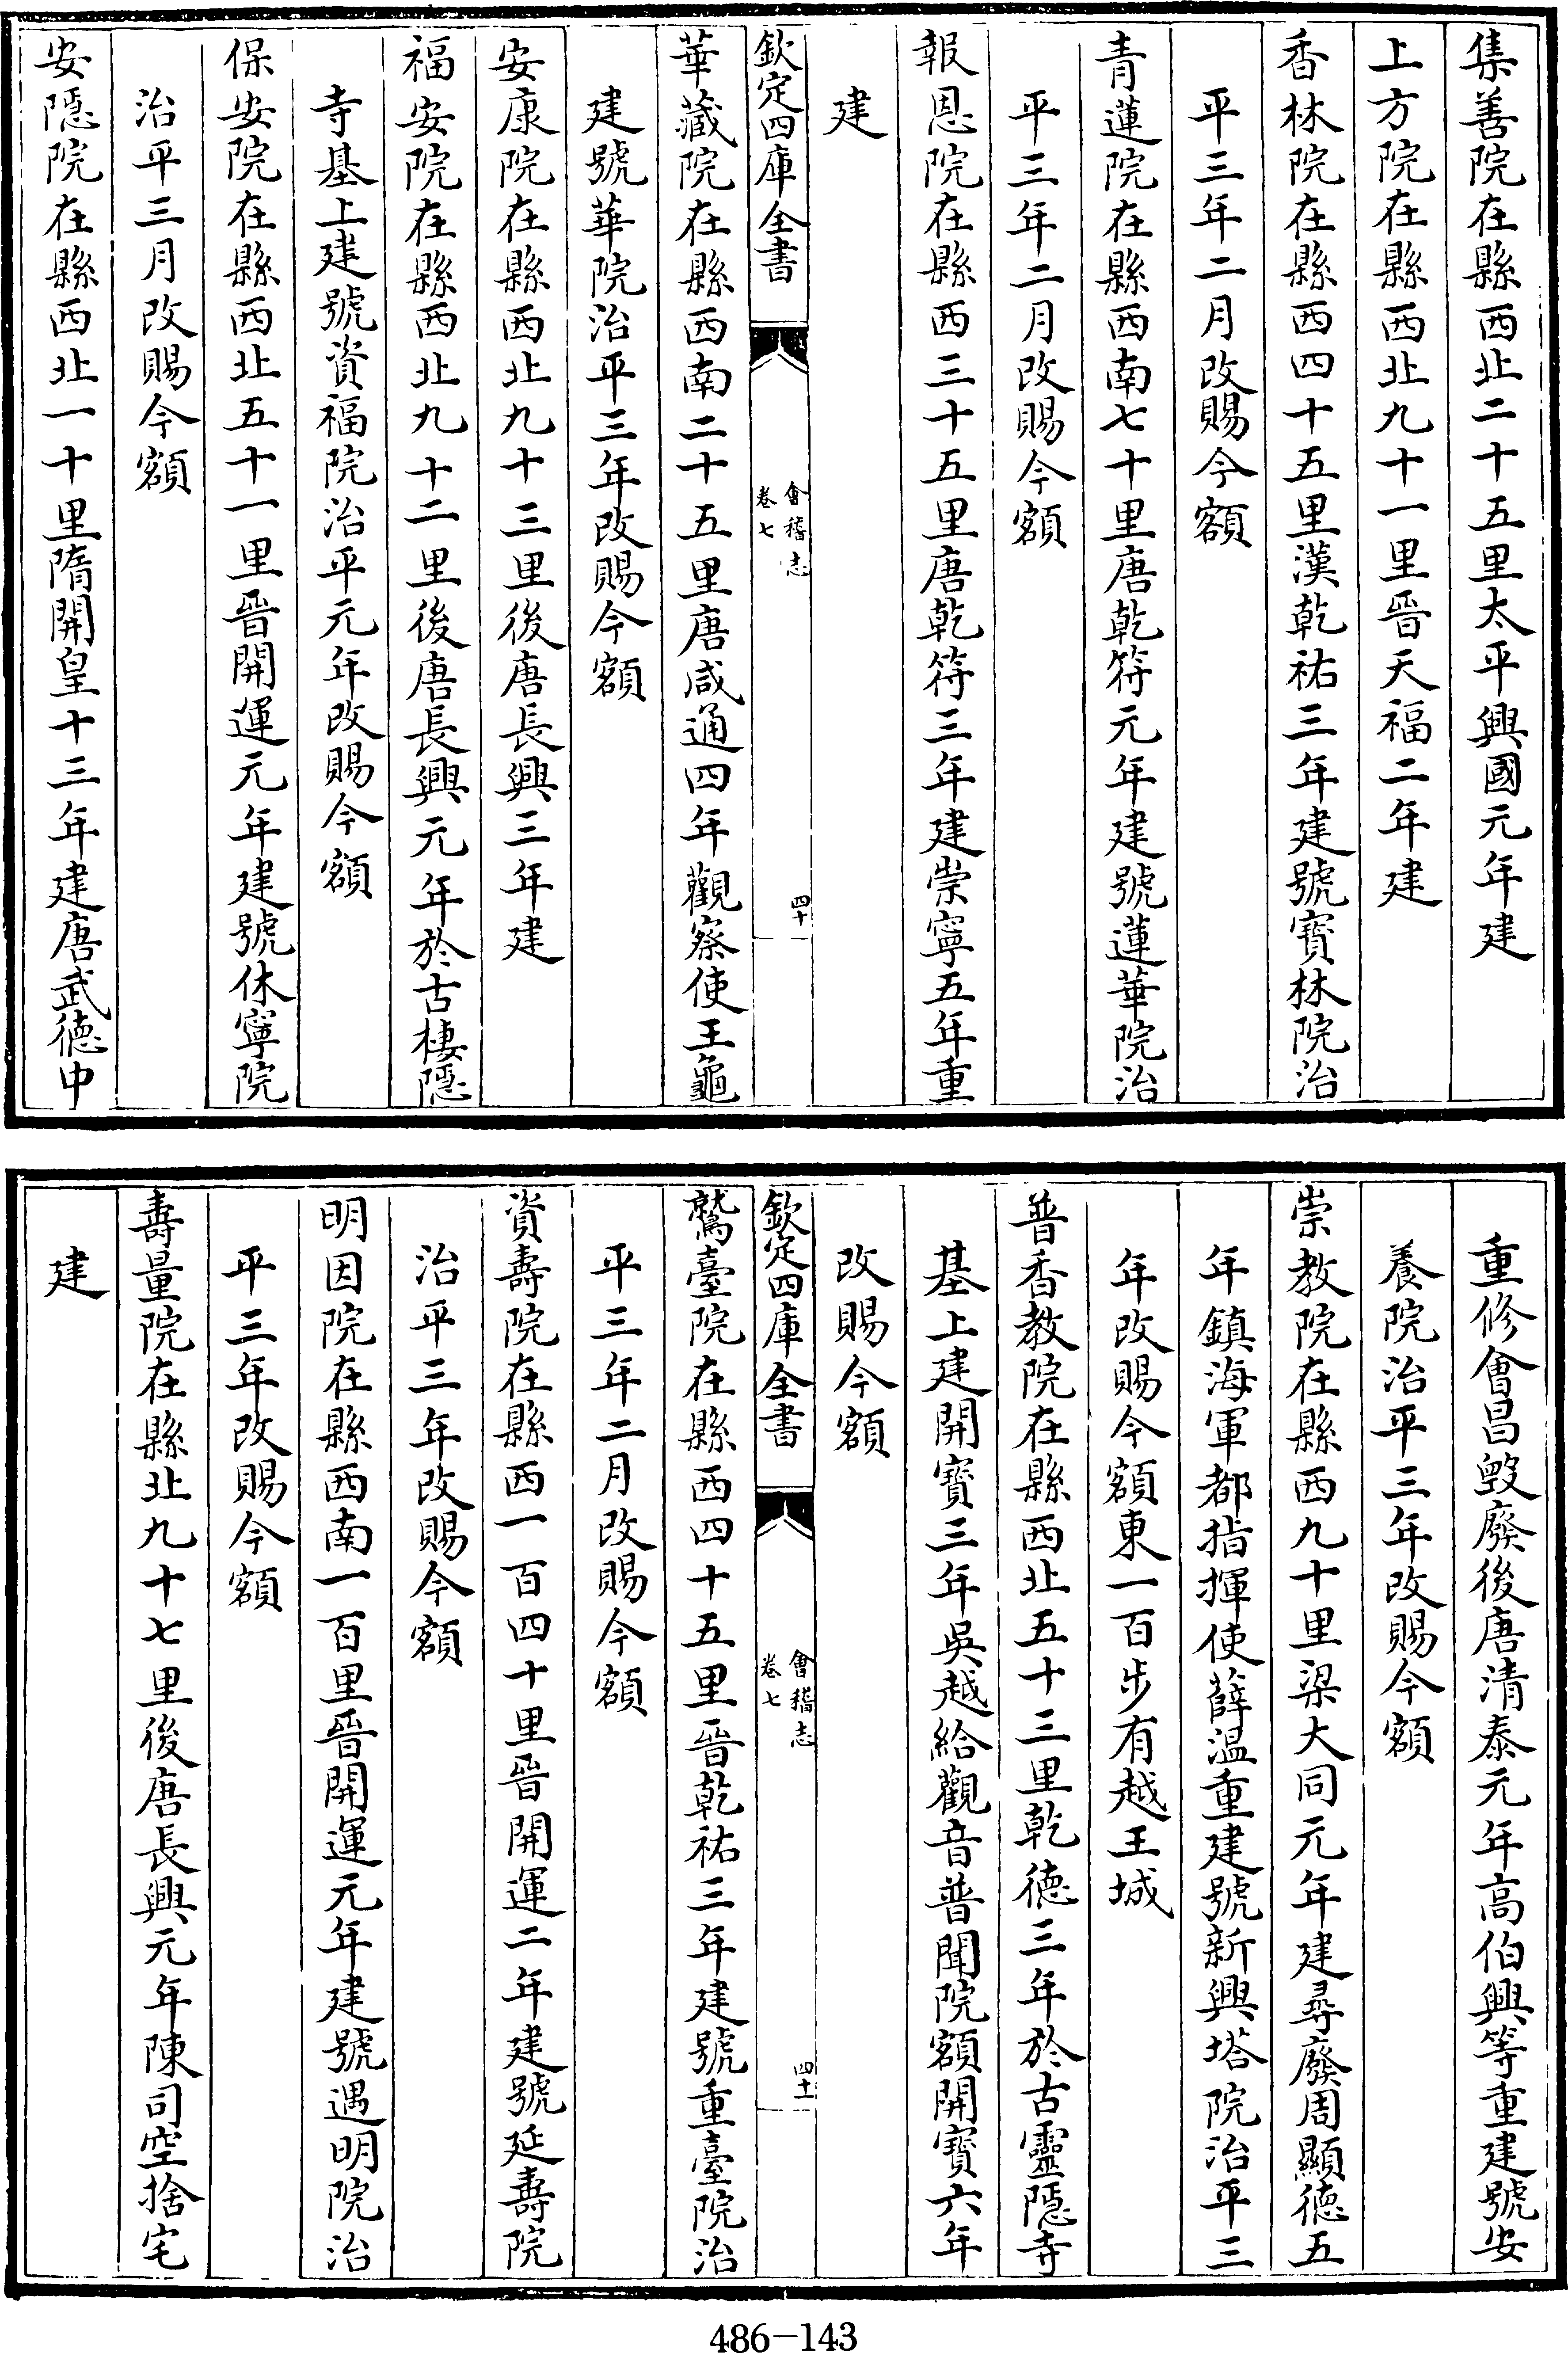 集善院在縣西北二十五里太平興國元年建
上方院在縣西北九十一里晉天福二年建
香林院在縣西四十五里漢乾祐三年建號寳林院治
平三年二月改賜今額
青蓮院在縣西南七十里唐乾符元年建號蓮華院治
平三年二月改賜今額
報恩院在縣西三十五里唐乾符三年建崇寧五年重
建
欽定四庫全書
會稽志
卷七
四十
華藏院在縣西南二十五里唐咸通四年觀察使王龜
建號華院治平三年改賜今額
安康院在縣西北九十三里後唐長興三年建
福安院在縣西北九十二里後唐長興元年於古棲隱
寺基上建號資福院治平元年改賜今額
保安院在縣西北五十一里晉開運元年建號休寧院
治平三月改賜今額
安隱院在縣西北一十里隋開皇十三年建唐武德中
重修會昌毀廢後唐清泰元年高伯興等重建號安
養院治平三年改賜今額
崇教院在縣西九十里梁大同元年建尋廢周顯德五
年鎮海軍都指揮使薛温重建號新興塔院治平三
年改賜今額東一百步有越王城
普香教院在縣西北五十三里乾德三年於古靈隱寺
基上建開寳三年吳越給觀音普聞院額開寳六年
改賜今額
欽定四庫全書
會稽志
卷七
四十一
鷲臺院在縣西四十五里晉乾祐三年建號重臺院治
平三年二月改賜今額
資壽院在縣西一百四十里晉開運二年建號延壽院
治平三年改賜今額
明因院在縣西南一百里晉開運元年建號遇明院治
平三年改賜今額
壽量院在縣北九十七里後唐長興元年陳司空捨宅
建
486-143